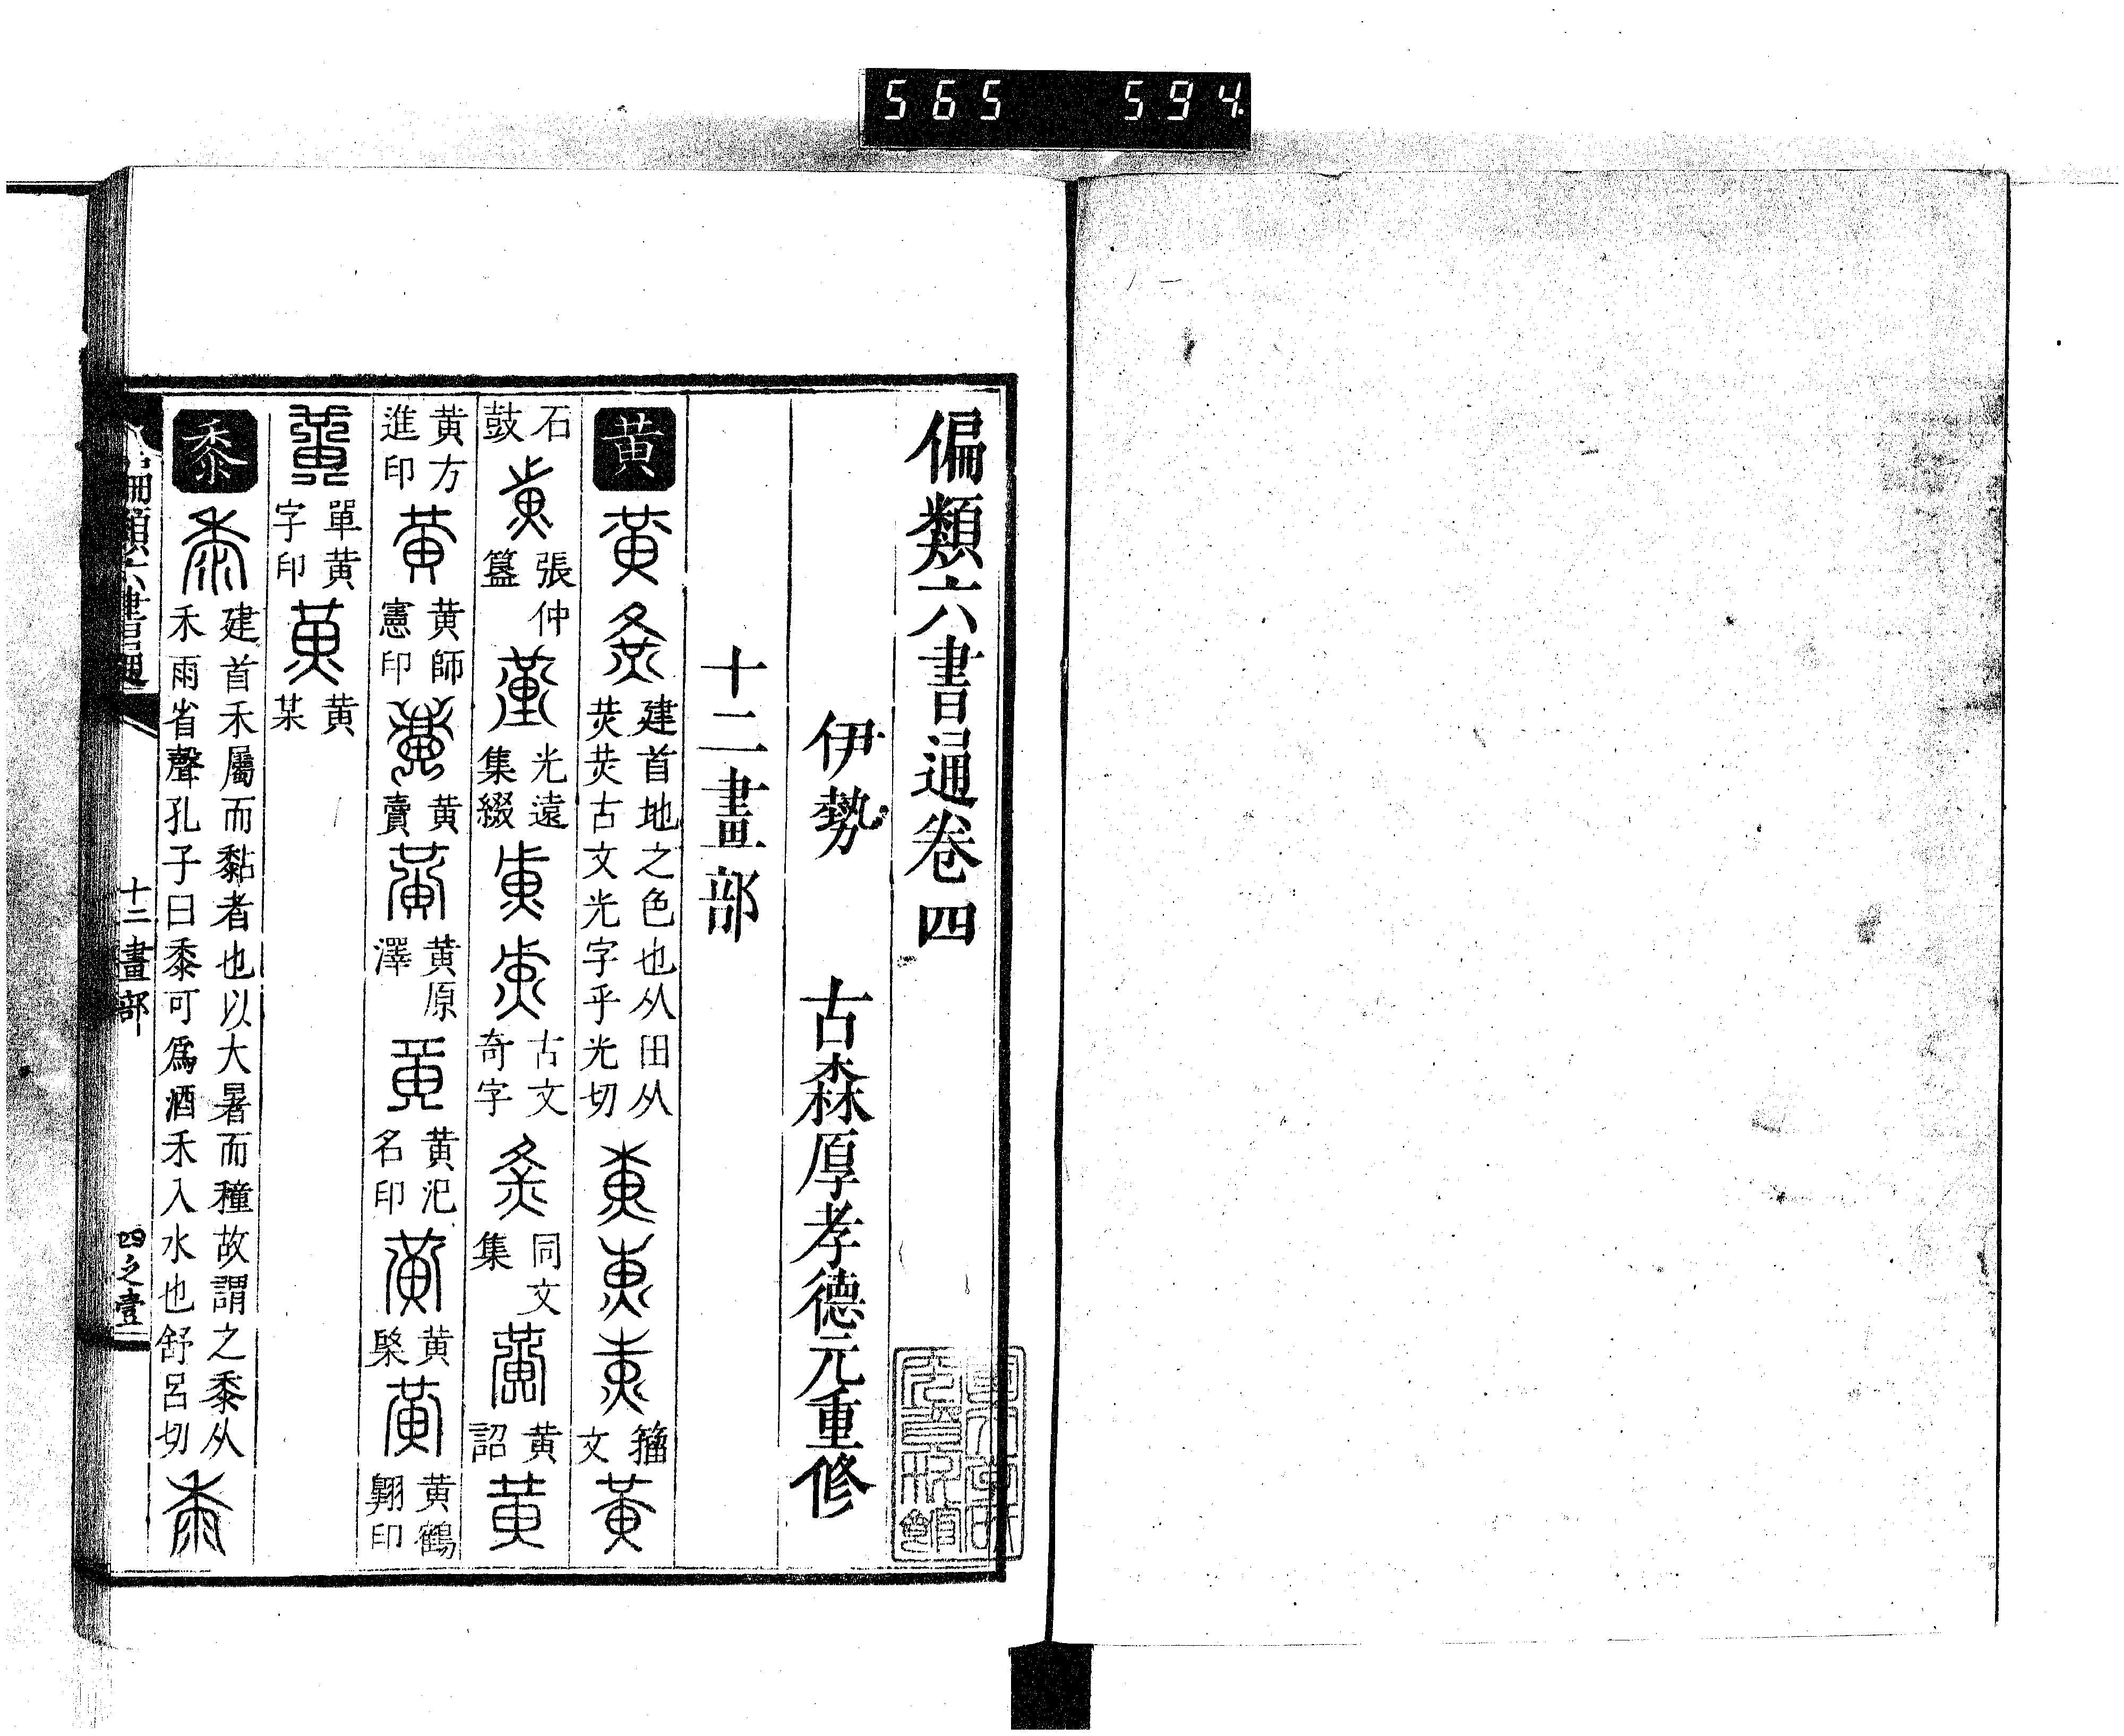 565 594
偏類六書通卷四
伊勢 古森厚孝德元重修
十二畫部
黃 建首地之色也从田从炗炗古文光字乎光切 籀文
石鼓 張仲簠 光遠集綴 古文奇字 同文集 黃詔
黃方進印 黃師憲印 黃賣 黃原澤 黃汜名印 黃槩 黃鶴翱印
單黃字印 黃某
黍 建首禾屬而黏者也以大暑而種故謂之黍从禾雨省聲孔子曰黍可爲酒禾入水也舒呂切
偏類六書通 十二畫部 四之壹